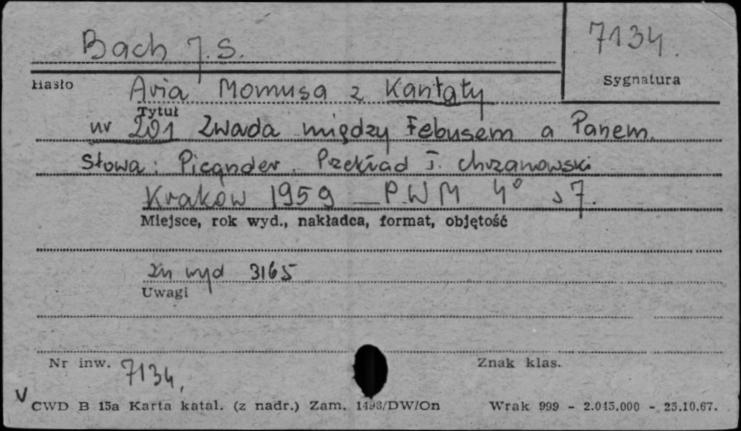 Bach J. S.
7134.
Hasło
Sygnatura
Aria Momusa z Kantaty
Tytuł
nr 201 Zwada między Febusem a Panem.
Słowa: Picander. Przekład T. Chrzanowski
Kraków 1959 PWM 4° s 7.
Miejsce, rok wyd., nakładca, format, objętość
zn wyd 3165
Uwagi
Nr inw. 7134.
Znak klas.
V
CWD B 15a Karta katal. (z nadr.) Zam. 1498/DW/On Wrak 999 - 2.045.000 - 25.10.67.